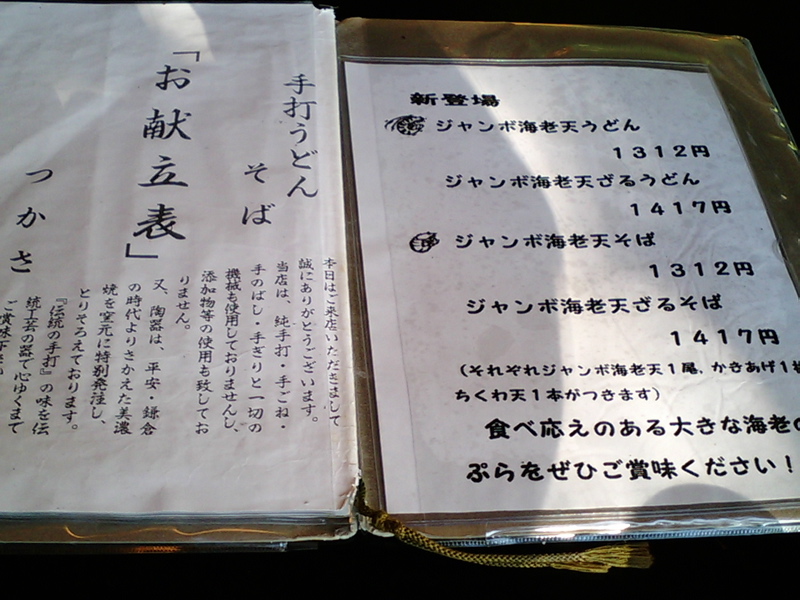 手打うどん
そば
「お献立表」
つかさ
本日はご来店いただきまして
誠にありがとうございます。
当店は、純手打・手ごね・
手のばし・手ぎりと一切の
機械も使用しておりませんし、
添加物等の使用も致してお
りません。
又、陶器は、平安・鎌倉
の時代よりさかえた美濃
焼を窯元に特別発注し、
とりそろえております。
『伝統の手打』の味を伝
統工芸の器で心ゆくまで
ご賞味下さい
新登場
ジャンボ海老天うどん
1312円
ジャンボ海老天ざるうどん
1417円
ジャンボ海老天そば
1312円
ジャンボ海老天ざるそば
1417円
（それぞれジャンボ海老天1尾、かきあげ1
ちくわ天1本がつきます）
食べ応えのある大きな海老の
ぷらをぜひご賞味ください！